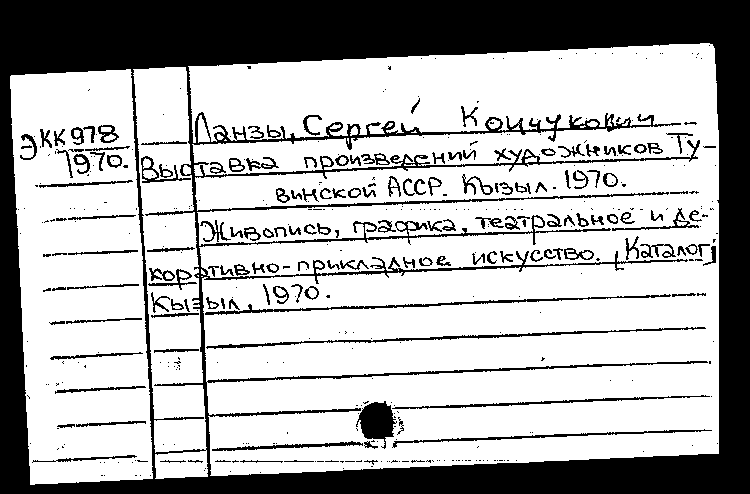 ЭКК 978
1970.
Ланзы, Сергей Кончукович
Выставка произведений художников Ту-
винской АССР. Кызыл. 1970.
Живопись, графика, театральное и де-
коративно-прикладное искусство. [Каталог]
Кызыл, 1970.